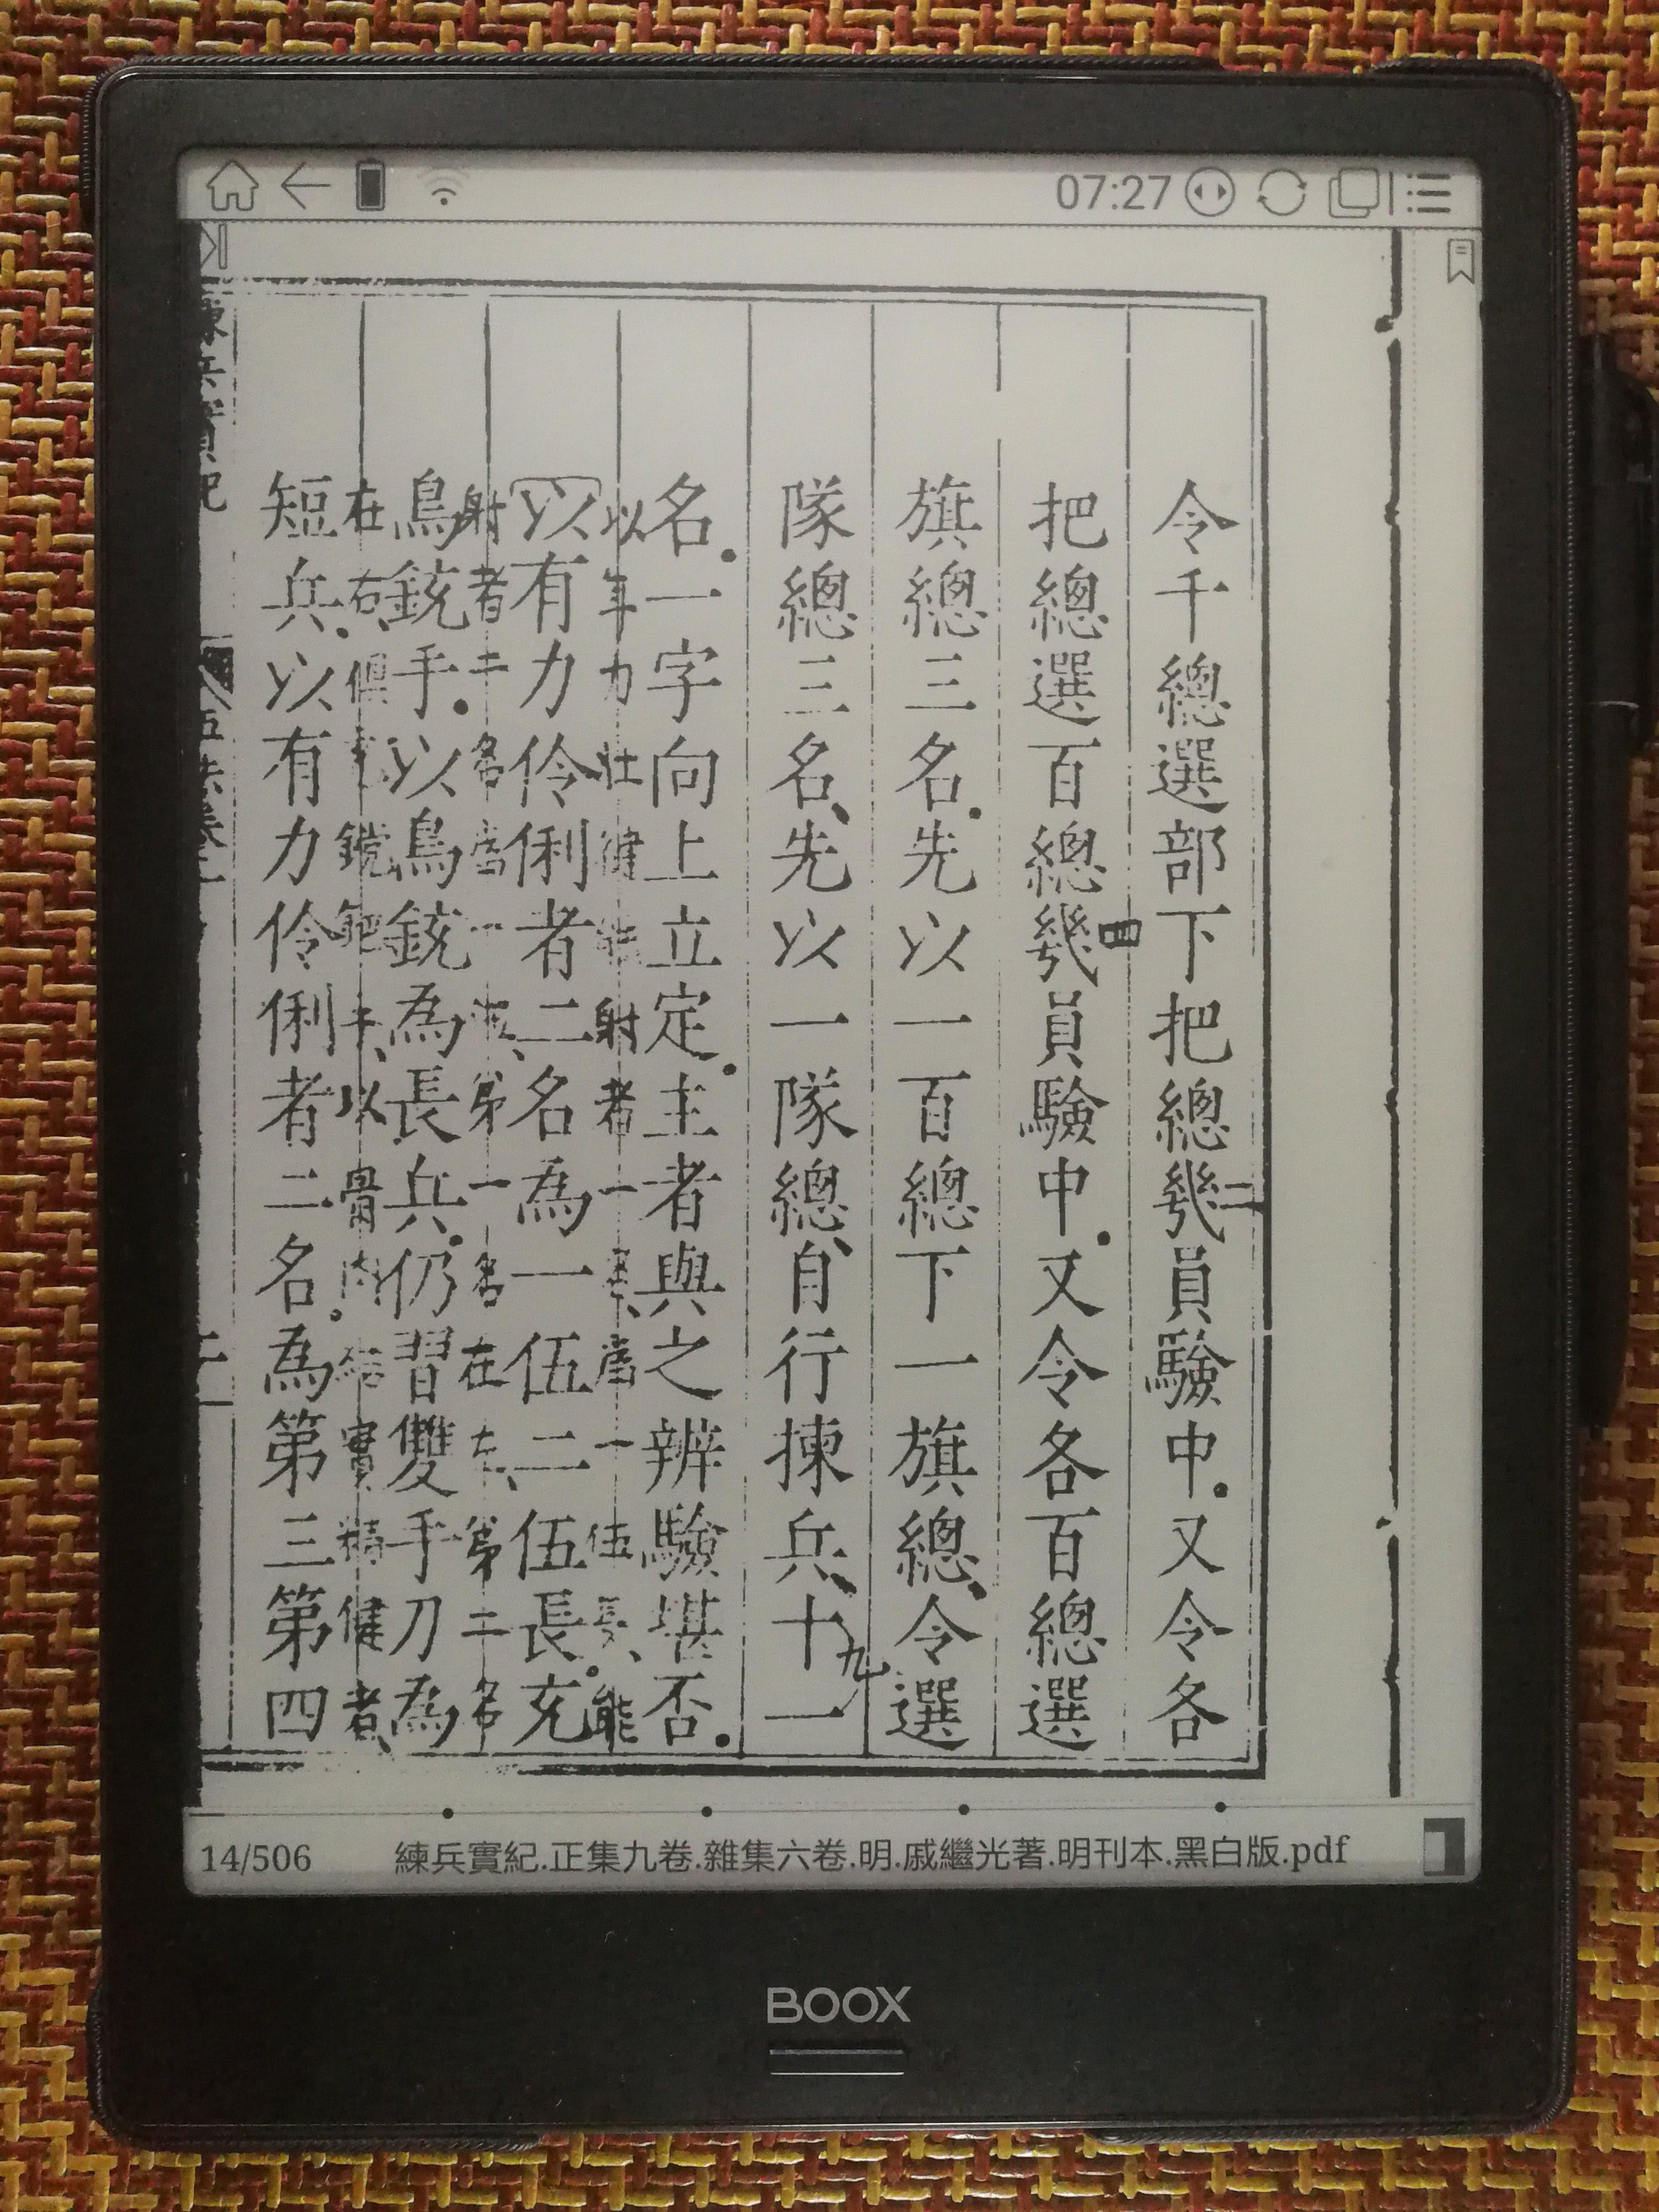 07:27
令千總選部下把總幾員驗中又令各
二
把總選百總幾員驗中又令各百總選
旗總三名先以一百總下一旗總令選
隊總三名先以一隊總自行揀兵十一
九
名一字向上立定主者與之辨驗堪否
以年力壯健能射者一名爲伍長能
以有力伶俐者二名為一伍二伍長充
射者二名居第一名在左第二名
鳥銃手以鳥銃為長兵仍習雙手刀為
在右俱以骨肉結實精健者
短兵以有力伶俐者二名為第三第四
練兵實紀
14/506
練兵實紀.正集九卷.雜集六卷.明.戚繼光著.明刊本.黑白版.pdf
BOOX